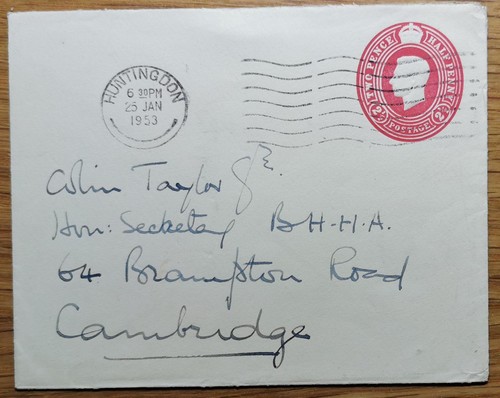 HUNTINGDON
6 30PM
25 JAN
1953
TWO PENCE HALF PENNY
2½ POSTAGE 2½
Colin Taylor
Hon: Secretary B.H.H.A.
64 Brampton Road
Cambridge